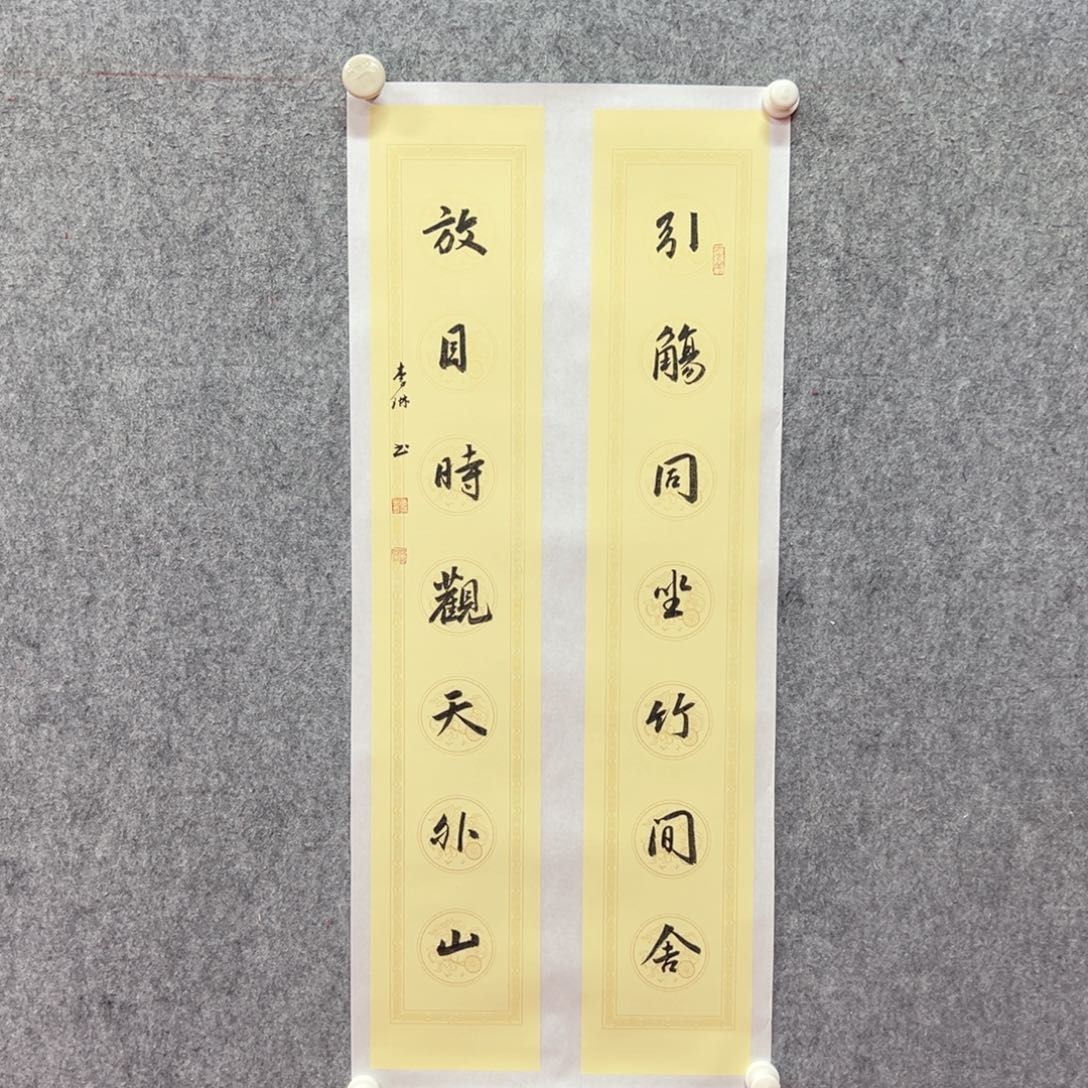 引觴同坐竹間舍
放目時觀天外山
李琳 书